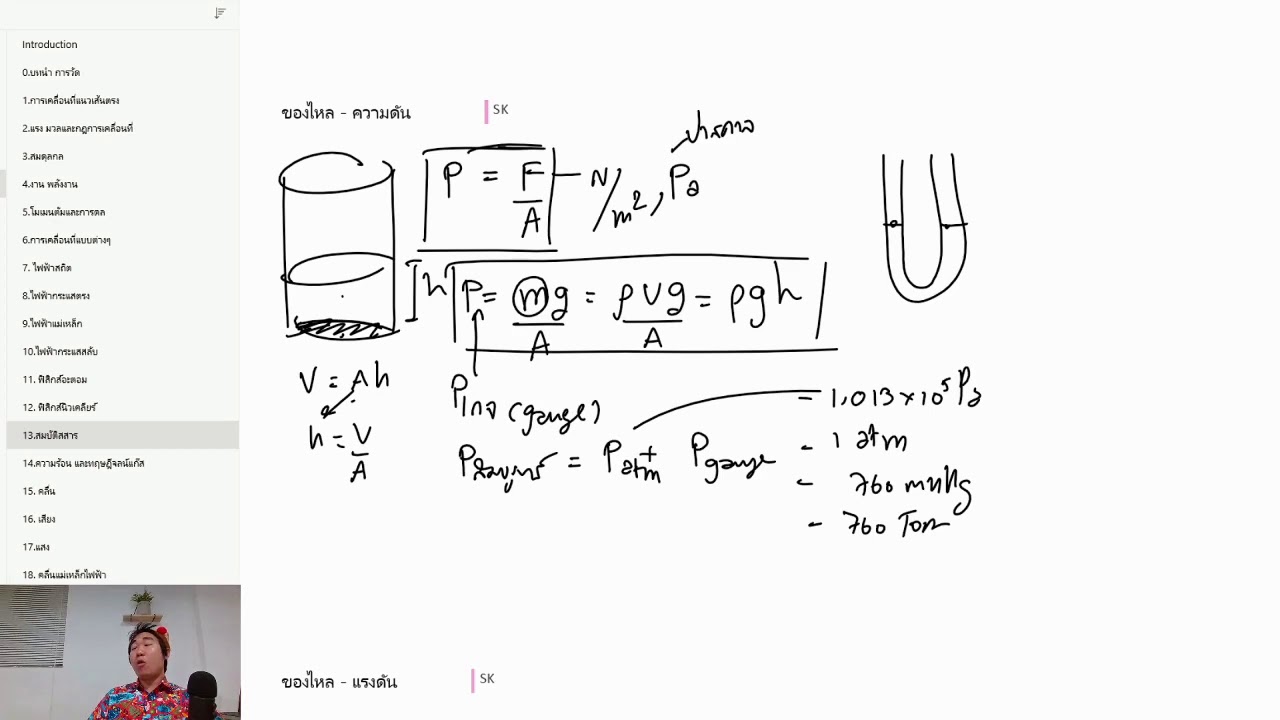 Introduction
0.บทนำ การวัด
1.การเคลื่อนที่แนวเส้นตรง
2.แรง มวลและกฎการเคลื่อนที่
3.สมดุลกล
4.งาน พลังงาน
5.โมเมนตัมและการดล
6.การเคลื่อนที่แบบต่างๆ
7. ไฟฟ้าสถิต
8.ไฟฟ้ากระแสตรง
9.ไฟฟ้าแม่เหล็ก
10.ไฟฟ้ากระแสสลับ
11. ฟิสิกส์อะตอม
12. ฟิสิกส์นิวเคลียร์
13.สมบัติสสาร
14.ความร้อน และทฤษฎีจลน์แก๊ส
15. คลื่น
16. เสียง
17.แสง
18. คลื่นแม่เหล็กไฟฟ้า
ของไหล - ความดัน SK
ปาสคาล
P = F/A N/m², Pa
h P = mg/A = ρVg/A = ρgh
V = Ah
h = V/A
Pเกจ (gauge)
Pสัมบูรณ์ = Patm + Pgauge
= 1.013 × 10⁵ Pa
- 1 atm
- 760 mmHg
- 760 Torr
ของไหล - แรงดัน SK